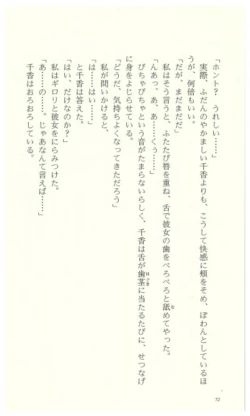 「ホント? うれしい……」
実際、ふだんのやかましい千香よりも、こうして快感に頬をそめ、ぽわんとしているほ
うが、何倍もいい。
「だが、まだまだだ」
私はそう言うと、ふたたび唇を重ね、舌で彼女の歯をべろべろと舐めてやった。
「んあっ、あ、あ……くぅ……」
ぴちゃぴちゃという音がたまらないらしく、千香は舌が歯茎に当たるたびに、せつなげ
に身をよじらせている。
「どうだ、気持ちよくなってきただろう」
私が問いかけると、
「は……はい……」
と千香は答えた。
「はい、だけなのか?」
私はギロリと彼女をにらみつけた。
「あ……の……。じゃあなんて言えば……」
千香はおろおろしている。
72